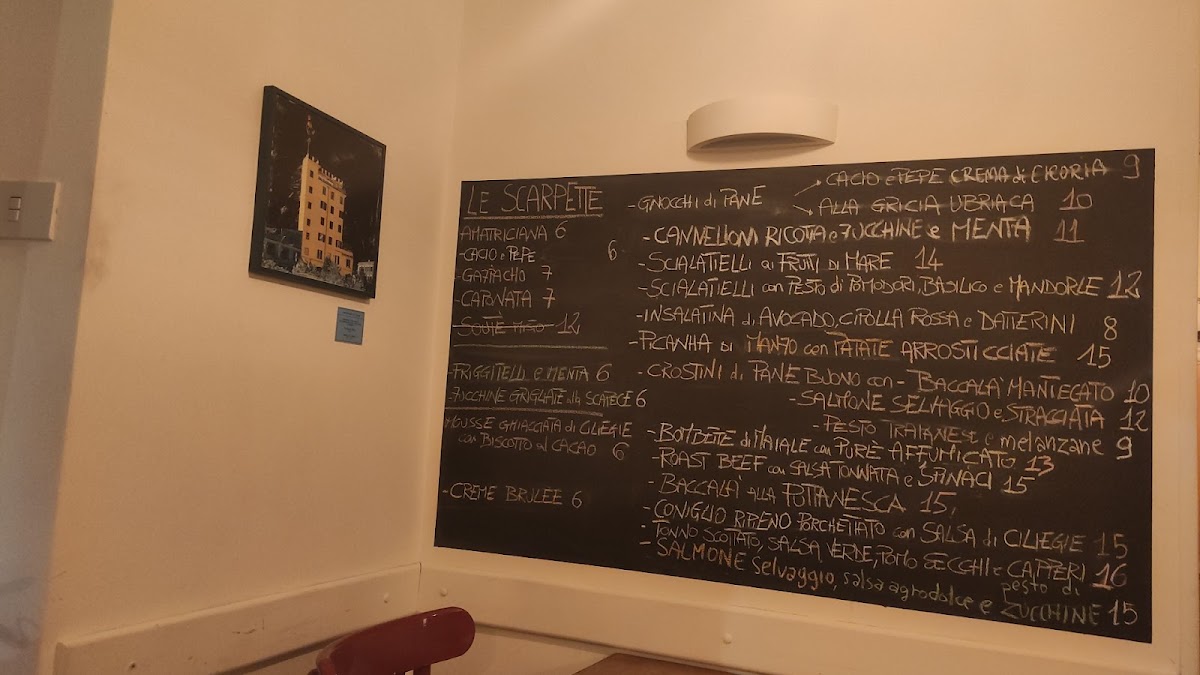 LE SCARPETTE
AMATRICIANA 6
- CACIO e PEPE 6
- GAZPACHO 7
- CAPONATA 7
- SOUTÈ MISTO 12
- FRIGGITELLI e MENTA 6
- ZUCCHINE GRIGLIATE alla SCAPECE 6
MOUSSE GHIACCIATA di CILIEGIE
con BISCOTTO al CACAO 6
- CREME BRULEE 6
- GNOCCHI di PANE
CACIO e PEPE CREMA di CICORIA 9
ALLA GRICIA UBRIACA 10
- CANNELLONI RICOTTA e ZUCCHINE e MENTA 11
- SCIALATIELLI ai FRUTTI DI MARE 14
- SCIALATIELLI con PESTO di POMODORI, BASILICO e MANDORLE 12
- INSALATINA di AVOCADO, CIPOLLA ROSSA e DATTERINI 8
- PICANHA DI MANZO con PATATE ARROSTICCIATE 15
- CROSTINI di PANE BUONO con - BACCALÀ MANTECATO 10
- SALMONE SELVAGGIO e STRACCIATA 12
- PESTO TRAPANESE e melanzane 9
- BOMBETTE di MAIALE con PURÈ AFFUMICATO 13
- ROAST BEEF con SALSA TONNATA e SPINACI 15
- BACCALÀ ALLA PUTTANESCA 15,
- CONIGLIO RIPIENO PORCHETTATO con SALSA di CILIEGIE 15
- TONNO SCOTTATO, SALSA VERDE, POMO SECCHI e CAPPERI 16
- SALMONE selvaggio, salsa agrodolce e pesto di ZUCCHINE 15